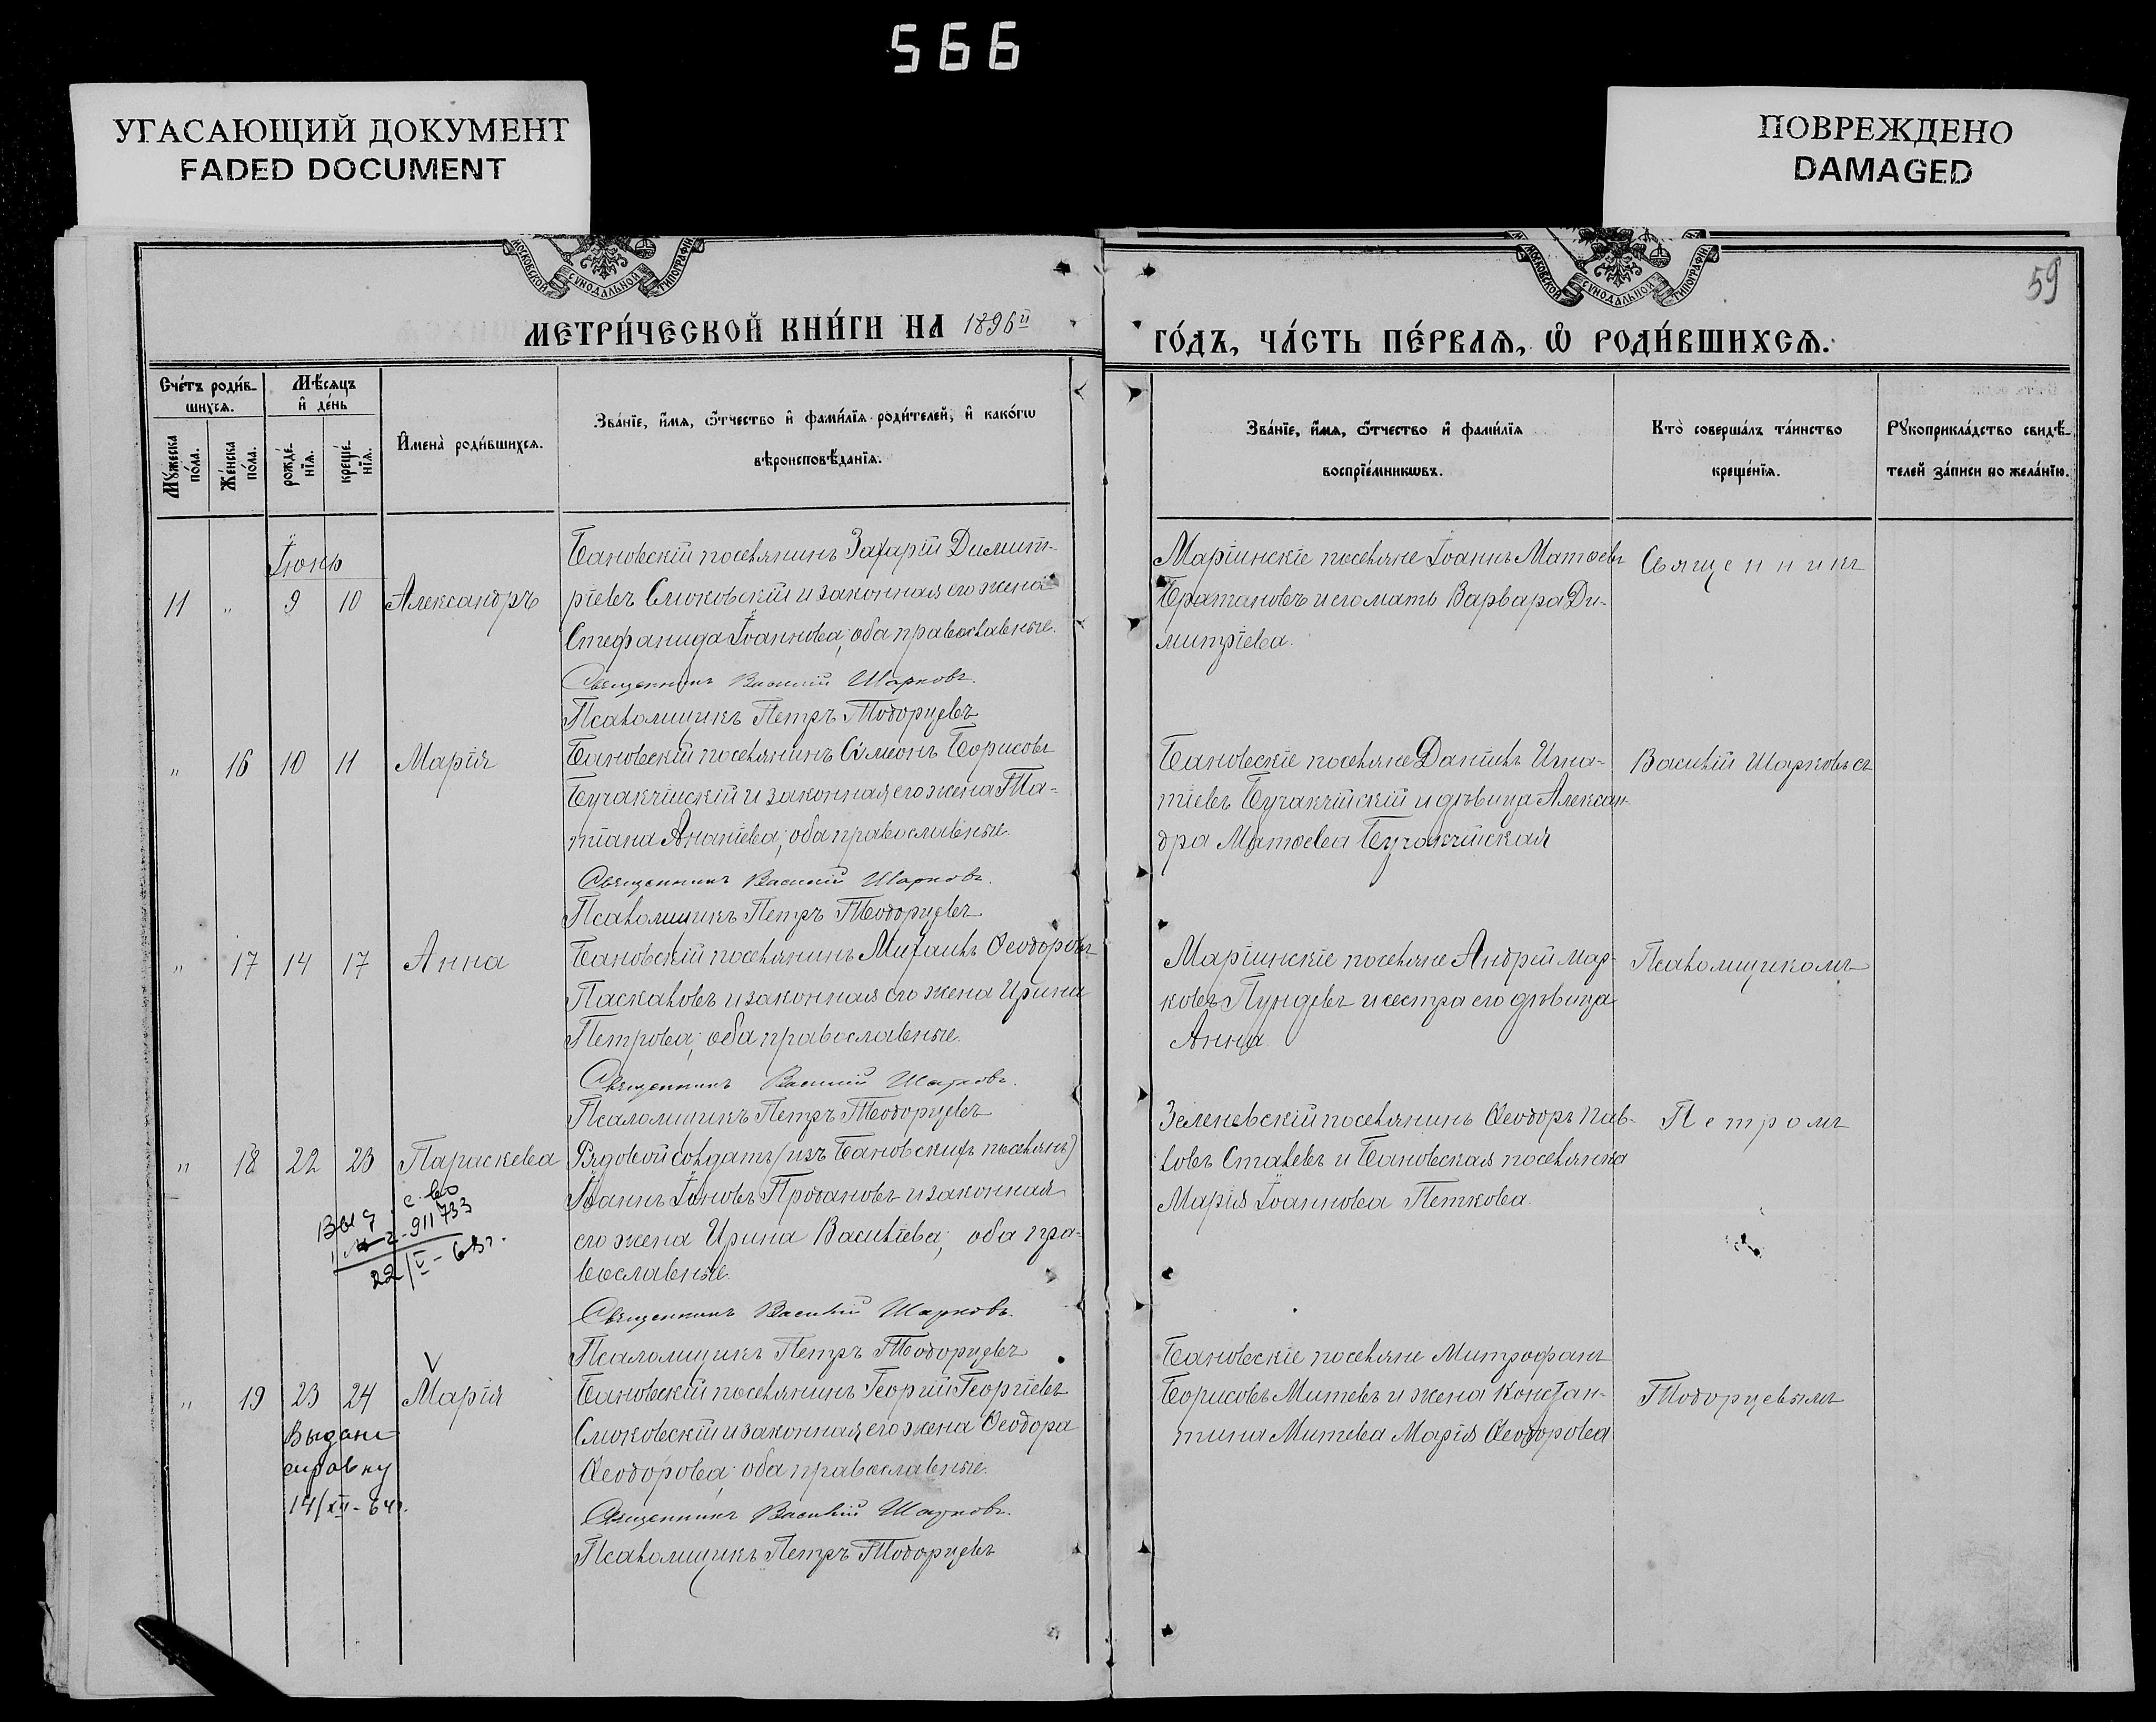 566
УГАСАЮЩИЙ ДОКУМЕНТ
FADED DOCUMENT
ПОВРЕЖДЕНО
DAMAGED
МОСКОВСКОЙ СУНОДАЛЬНОЙ ТИПОГРАФІИ
МОСКОВСКОЙ СУНОДАЛЬНОЙ ТИПОГРАФІИ
59
МЕТРИ́ЧЕСКОЙ КНИ́ГИ НА 1896й
ГО́ДЪ, ЧА́СТЬ ПЕ́РВАѦ, Ѡ РОДИ́ВШИХСѦ.
Сче́тъ роди́в-
шихсѧ.
Мѣ́сѧцъ
и҆ де́нь
Мꙋ́жеска
по́ла.
Же́нска
по́ла.
рожде́-
нїѧ.
креще́-
нїѧ.
И҆мена̀ роди́вшихсѧ.
Зва́нїе, и҆́мѧ, ѻ҆́тчество и҆ фамилїѧ роди́телей, и҆ како́гѡ
вѣроисповѣ́данїѧ.
Зва́нїе, и҆́мѧ, ѻ҆́тчество и҆ фами́лїѧ
воспрїе́мникѡвъ.
Кто̀ соверша́лъ та́инство
креще́нїѧ.
Рꙋкоприкла́дство свидѣ́-
телей за́писи по жела́нїю.
Іюнь
11 " 9 10 Александръ
Бановскій поселянинъ Захарій Димит-
ріевъ Слюковскій и законная его жена
Стефанида Іоаннова; оба православные.
Священникъ Василій Шарковъ.
Псаломщикъ Петръ Тодорцевъ
Маріинскіе поселяне Іоаннъ Матѳеевъ
Братановъ и его мать Варвара Ди-
митріева.
Священникъ
" 16 10 11 Марія
Бановскій поселянинъ Симеонъ Борисовъ
Бучакчійскій и законная его жена Та-
тіана Ананіева; оба православные.
Священникъ Василій Шарковъ.
Псаломщикъ Петръ Тодорцевъ
Бановскіе поселяне Даніилъ Игна-
тіевъ Бучакчійскій и дѣвица Алексан-
дра Матѳеева Бучакчійская
Василій Шарковъ съ
" 17 14 17 Анна
Бановскій поселянинъ Михаилъ Ѳеодоровъ
Паскаловъ и законная его жена Ирина
Петрова; оба православные.
Священникъ Василій Шарковъ.
Псаломщикъ Петръ Тодорцевъ
Маріинскіе поселяне Андрей Мар-
ковъ Пундевъ и сестра его дѣвица
Анна.
Псаломщикомъ
" 18 22 23 Параскева
Рядовой солдатъ (изъ Бановскихъ поселянъ)
Іоаннъ Іоновъ Продановъ и законная
его жена Ирина Василіева; оба пра-
вославные.
Священникъ Василій Шарковъ.
Псаломщикъ Петръ Тодорцевъ
Зеленевскій поселянинъ Ѳеодоръ Пав-
ловъ Сталевъ и Бановская поселянка
Марія Іоаннова Петкова.
Петромъ
с-во
911733
22/V-63г.
V
" 19 23 24 Марія
Бановскій поселянинъ Георгій Георгіевъ
Слюковскій и законная его жена Ѳеодора
Ѳеодорова; оба православные.
Священникъ Василій Шарковъ.
Псаломщикъ Петръ Тодорцевъ
Бановскіе поселяне Митрофанъ
Борисовъ Митевъ и жена Констан-
тина Митева Марія Ѳеодорова
Тодорцевымъ
Выдана
справку
14/XII-64г.